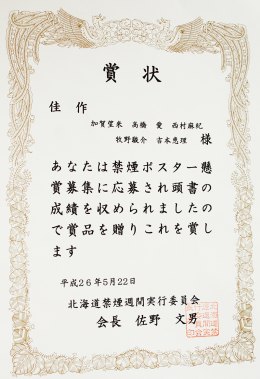 賞状
佳作
加賀聖来 高橋愛 西村麻紀
牧野駿介 吉本恵理 様
あなたは禁煙ポスター懸
賞募集に応募され頭書の
成績を収められましたの
で賞品を贈りこれを賞し
ます
平成26年5月22日
北海道禁煙週間実行委員会
会長 佐野文男